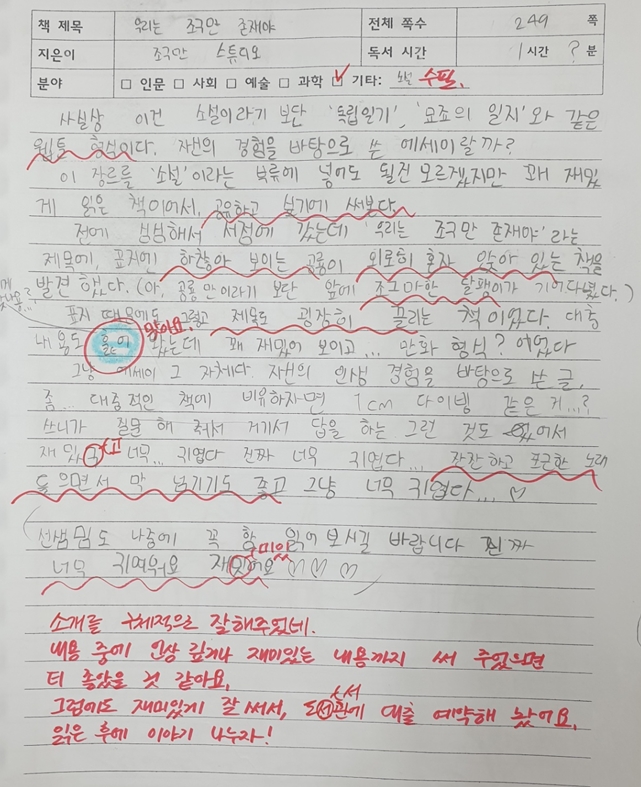 책 제목 우리는 조국만 존재야 전체 쪽수 249 쪽
지은이 조국만 스튜디오 독서 시간 1 시간 ? 분
분야 □ 인문 □ 사회 □ 예술 □ 과학 □ 기타: 소설 수필.
사실상 이건 소설이라기 보단 '독립일기', '모죠의 일지'와 같은
웹툰 형식이다. 자신의 경험을 바탕으로 쓴 에세이랄까?
이 장르를 '소설'이라는 분류에 넣어도 될진 모르겠지만 꽤 재밌
게 읽은 책이어서, 공유하고 싶기에 써본다.
전에 심심해서 서점에 갔는데 '우리는 조국만 존재야'라는
제목에, 표지엔 하찮아 보이는 공룡이 외로히 혼자 앉아 있는 책을
발견했다. (아, 공룡만이라기 보단 앞에 조그마한 달팽이가 기어다녔다.)
표지 때문에도 그렇고 제목도 굉장히 끌리는 책이었다. 대충
내용도 흝어 맞아요. 봤는데 꽤 재밌어 보이고... 만화 형식? 이였다
그냥 에세이 그 자체다. 자신의 인생 경험을 바탕으로 쓴 글,
좀... 대중적인 책에 비유하자면 1cm 다이빙 같은 거...?
쓰니가 질문 해 줘서 거기서 답을 하는 그런 것도 있어서
재밌고 너무... 귀엽다 진짜 너무 귀엽다... 잔잔하고 포근한 노래
들으면서 막 넘기기도 좋고 그냥 너무 귀엽다... ♡
선생님도 나중에 꼭 함 읽어보시길 바랍니다 진짜
너무 귀여워요 재밋어요 미있 ♡♡♡
소개를 구체적으로 잘해주었네.
내용 중에 인상 깊거나 재미있는 내용까지 써 주었으면
더 좋았을 것 같아요.
그럼에도 재미있게 잘 써서, 도서관에 대출 예약해 놨어요.
읽은 후에 이야기 나누자!